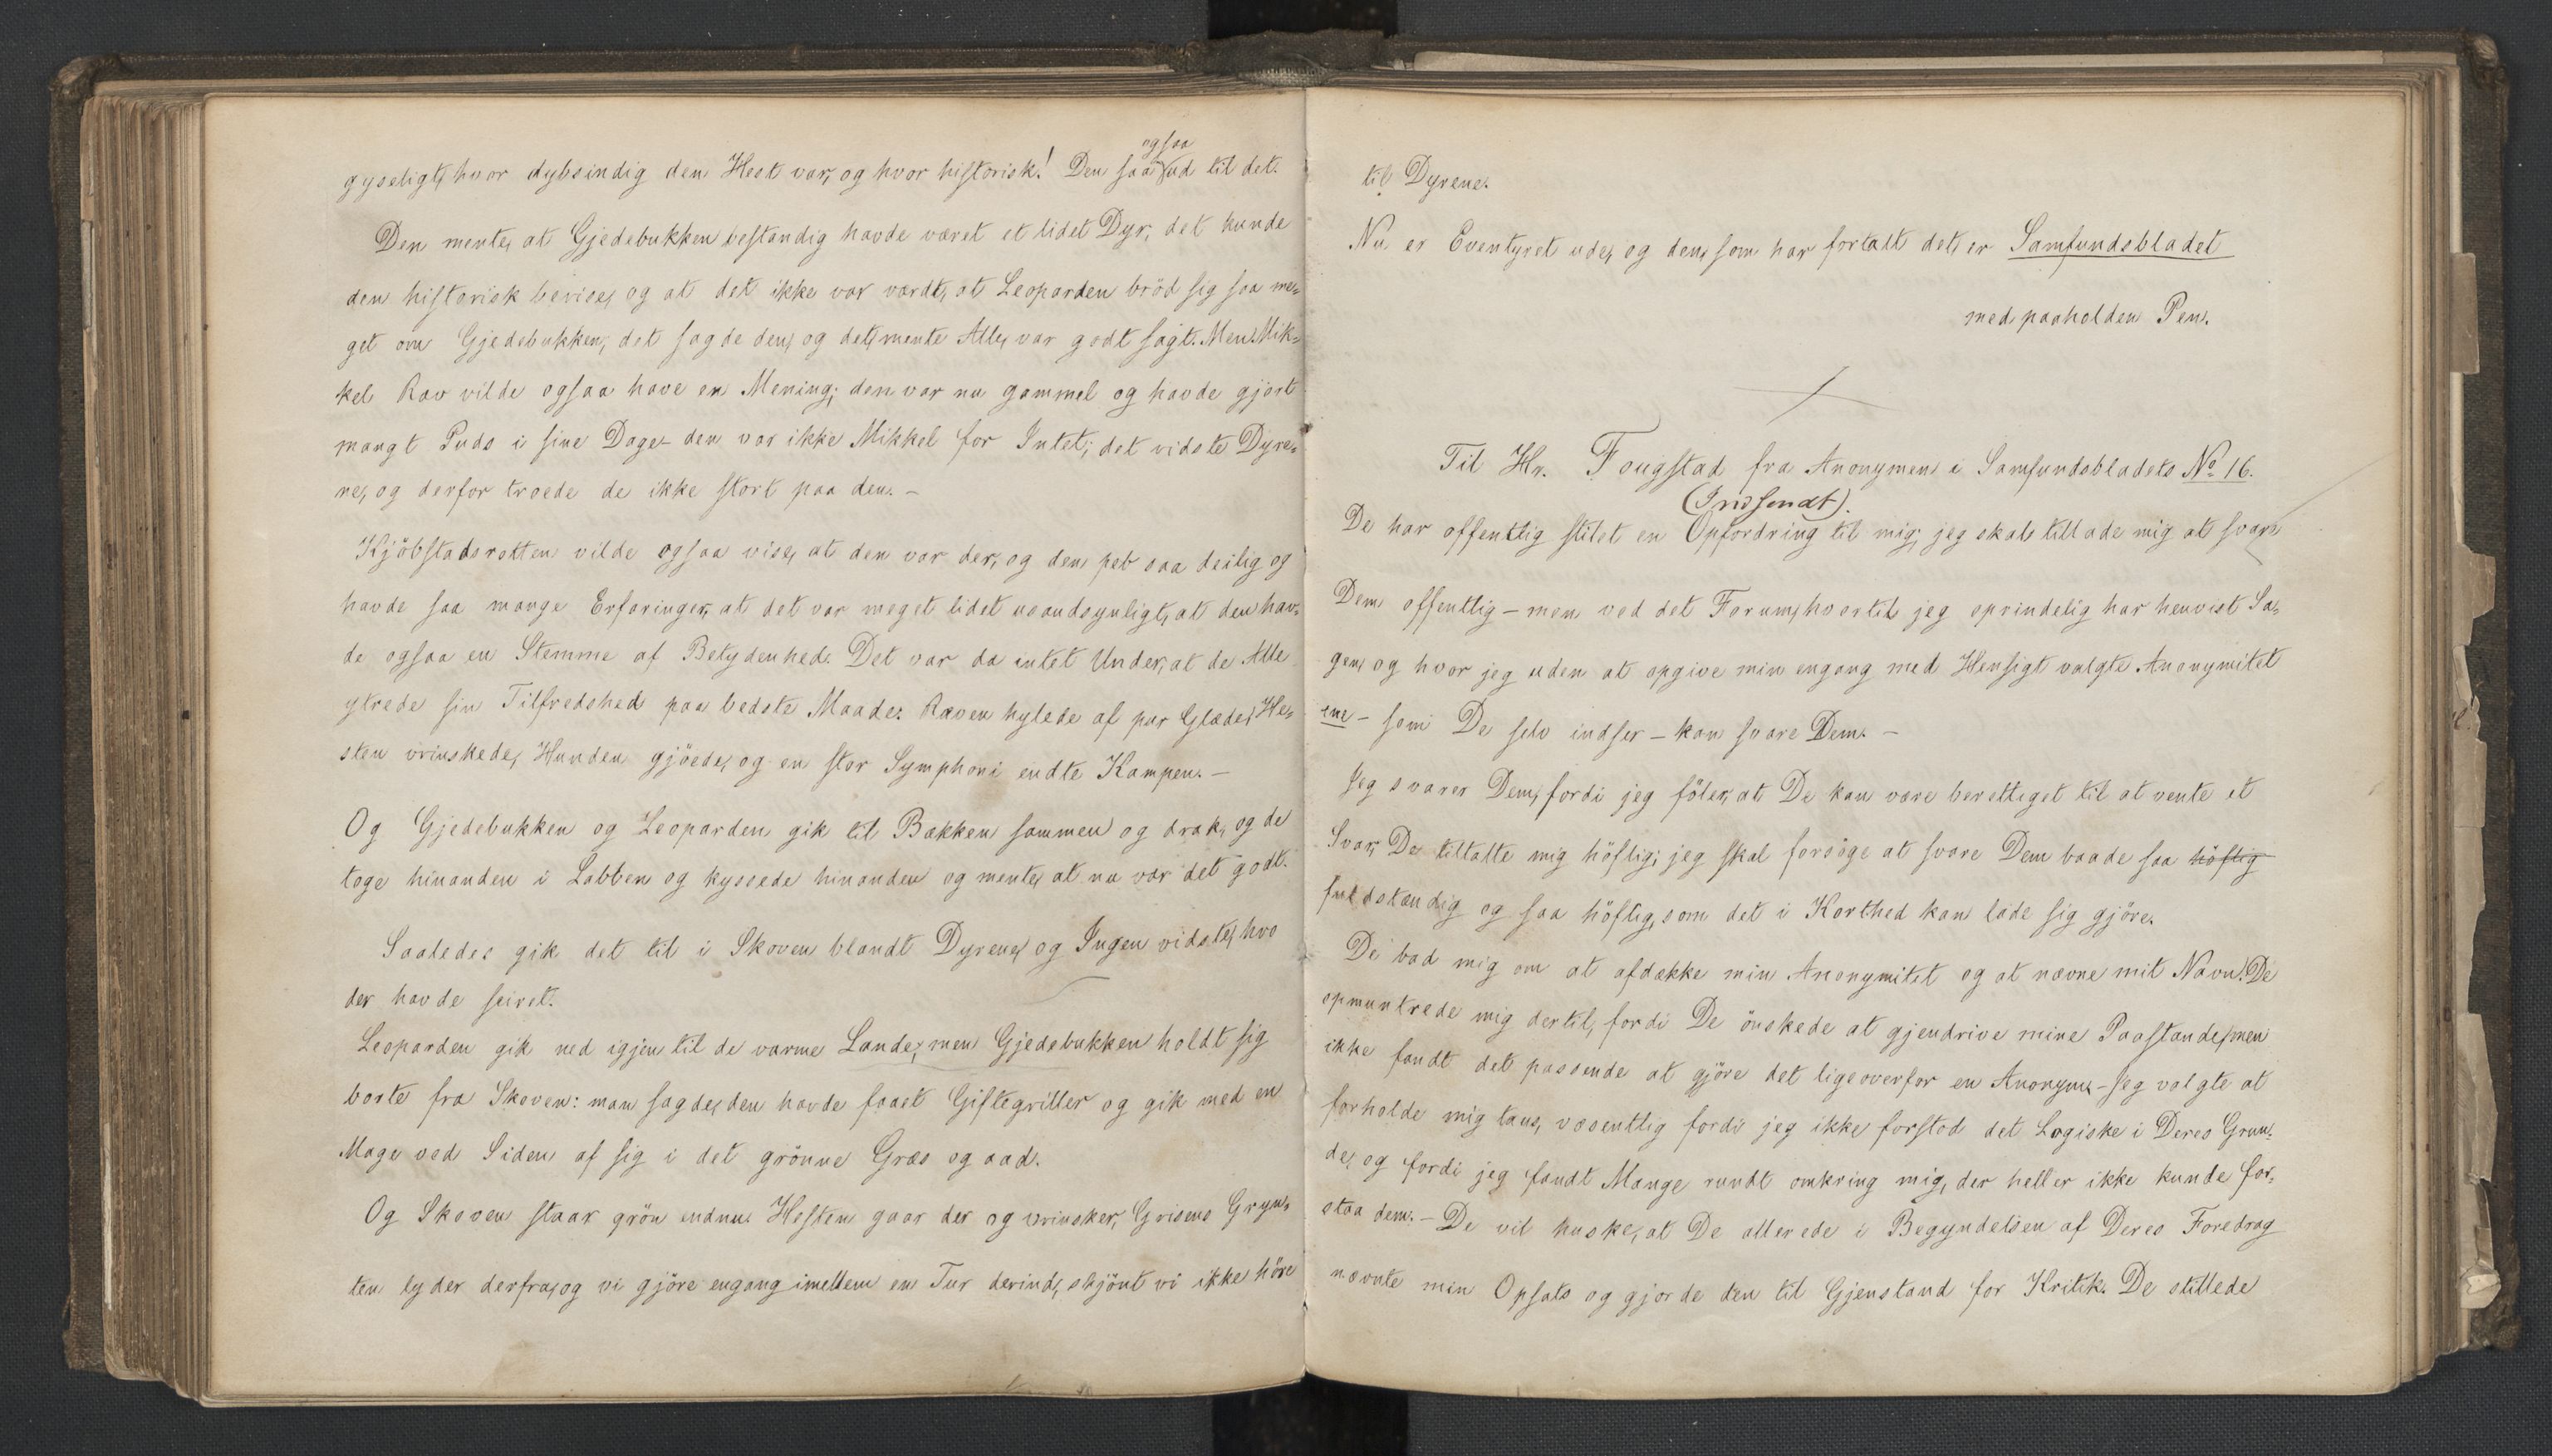 gyseligt, hvor dybsindig den Hest var, og hvor historisk! Den saa ogsaa ud til det.
Den mente, at Gjedebukken bestandig havde været et lidet Dyr, det kunde
den historisk bevise, og at det ikke var værdt, at Leoparden bröd sig saa me-
get om Gjedebukken; det sagde den, og det, mente Alle, var godt sagt. Men Mik-
kel Ræv vilde ogsaa have en Mening; den var nu gammel og havde gjört
mangt Puds i sine Dage - den var ikke Mikkel for Intet; det vidste Dyre-
ne, og derfor troede de ikke stort paa den. -
Kjöbstadsrotten vilde ogsaa vise, at den var der, og den peb saa deilig og
havde saa mange Erfaringer, at det var meget lidet usandsynligt, at den hav-
de ogsaa en Stemme af Betydenhed. Det var da intet Under, at de Alle
ytrede sin Tilfredshed paa bedste Maade: Ræven hylede af pur Glæde, He-
sten vrinskede, Hunden gjöede, og en stor Symphoni endte Kampen. -
Og Gjedebukken og Leoparden gik til Bækken sammen og drak, og de
toge hinanden i Labben og kyssede hinanden og mente, at nu var det godt.
Saaledes gik det til i Skoven blandt Dyrene, og Ingen vidste, hvo
der havde seiret.
Leoparden gik ned igjen til de varme Lande, men Gjedebukken holdt sig
borte fra Skoven: man sagde, den havde faaet Giftegriller og gik med en
Mage ved Siden af sig i det grönne Græs og aad.
Og Skoven staar grön endnu. Hesten gaar der og vrinsker, Grisens Gryn-
ten lyder derfra, og vi gjöre engang imellem en Tur derind, skjönt vi ikke höre
til Dyrene.
Nu er Eventyret ude, og den, som har fortalt det, er Samfundsbladet
med paaholden Pen.
Til Hr. Fougstad fra Anonymen i Samfundsbladets No 16.
(Indsendt).
De har offentlig stilet en Opfordring til mig; jeg skal tillade mig at svare
Dem offentlig - men ved det Forum, hvortil jeg oprindelig har henvist Sa-
gen, og hvor jeg uden at opgive min engang med Hensigt valgte Anonymitet
ene - som De selv indser - kan svare Dem. -
Jeg svarer Dem, fordi jeg föler, at De kan være berettiget til at vente et
Svar; De tiltalte mig höflig; jeg skal forsöge at svare Dem baade saa höflig
fuldstændig og saa höflig, som det i Korthed kan lade sig gjöre.
De bad mig om at afdække min Anonymitet og at nævne mit Navn. De
opmuntrede mig dertil, fordi De önskede at gjendrive mine Paastande, men
ikke fandt det passende at gjöre det ligeoverfor en Anonym. - Jeg valgte at
forholde mig taus, væsentlig fordi jeg ikke forstod det Logiske i Deres Grun-
de, og fordi jeg fandt Mange rundt omkring mig, der heller ikke kunde for-
staa dem. - De vil huske, at De allerede i Begyndelsen af Deres Foredrag
nævnte min Opsats og gjorde den til Gjenstand for Kritik. De stillede